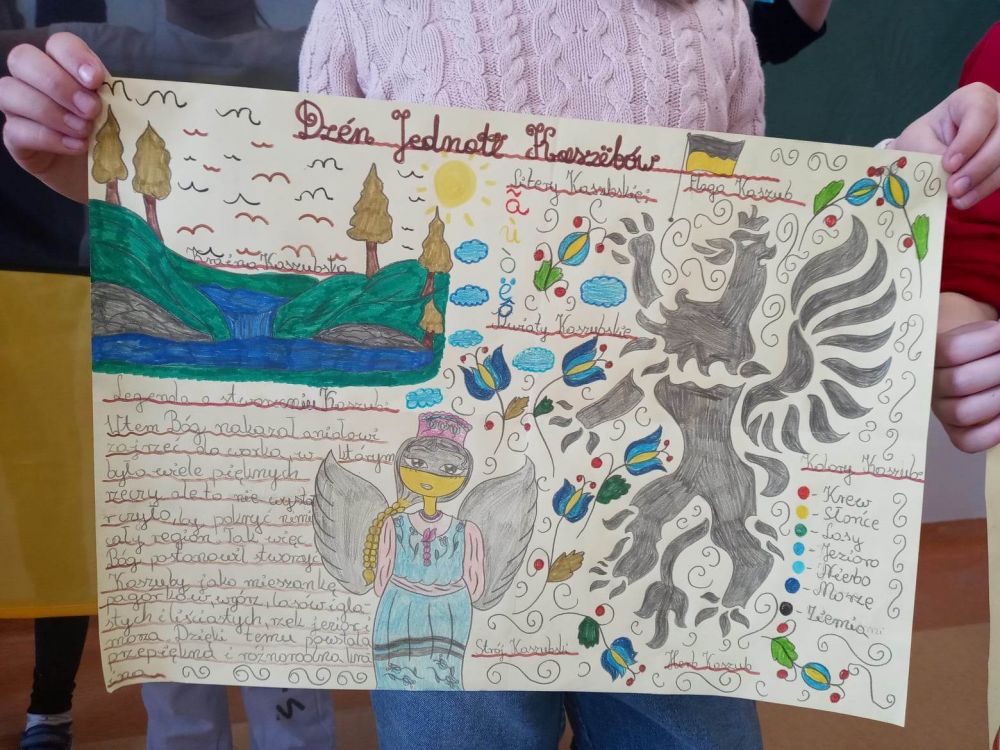 Dzén Jednotë Kaszëbów
Litery Kaszubskie:
Flaga Kaszub
ã
ù
ò
ë
Kraina Kaszubska
Kwiaty Kaszubskie
Legenda o stworzeniu Kaszub:
Wtem Bóg nakazał aniołowi
zajrzeć do worka, w którym
było wiele pięknych
rzeczy ale to nie wysta
rczyło, by pokryć
cały region. Tak więc
Bóg postanowił stworzyć
Kaszuby jako mieszankę
pagórków, wzgórz, lasów igla-
stych i liściastych, rzek jezior i
morza. Dzięki temu powstała
przepiękna i różnorodna kra
ina
Kolory Kaszub:
- Krew
- Słońce
- Lasy
- Jezioro
- Niebo
- Morze
- Ziemia
Strój Kaszubski
Herb Kaszub